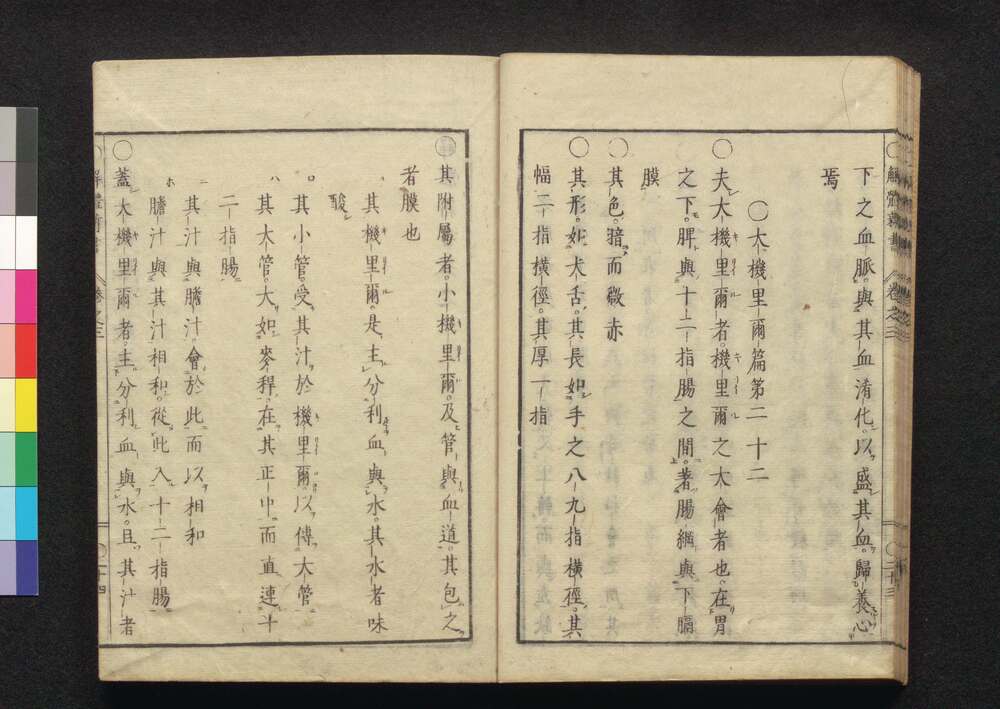 下之血脈與其血淆化以盛其血歸養心
焉
〇大機里爾篇第二十二
〇夫大機里爾者機里爾之大會者也在胃
之下脾與十二指腸之間著腸網與下膈
膜
〇其色暗而微赤
〇其形如犬舌其長如手之八九指橫徑其
幅二指橫徑其厚一指
〇其附屬者小機里爾及管與血道其包之
者膜也
イ其機里爾是主分利血與水其水者味
酸
ロ其小管受其汁於機里爾以傳大管
ハ其大管大如麥稈在其正中而直連十
二指腸
ニ其汁與膽汁會於此而以相和
ホ膽汁與其汁相和從此入十二指腸
〇蓋大機里爾者主分利血與水且其汁者